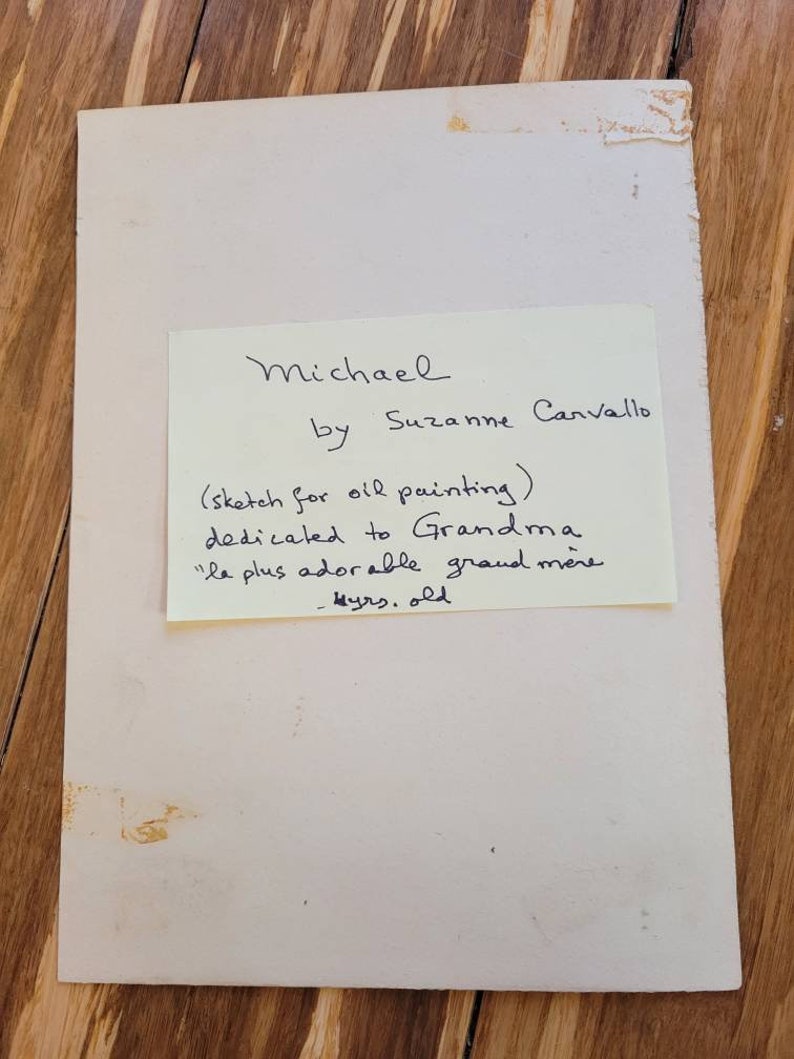 Michael
by Suzanne Carvallo
(sketch for oil painting)
dedicated to Grandma
"la plus adorable grand mère
- 4yrs. old